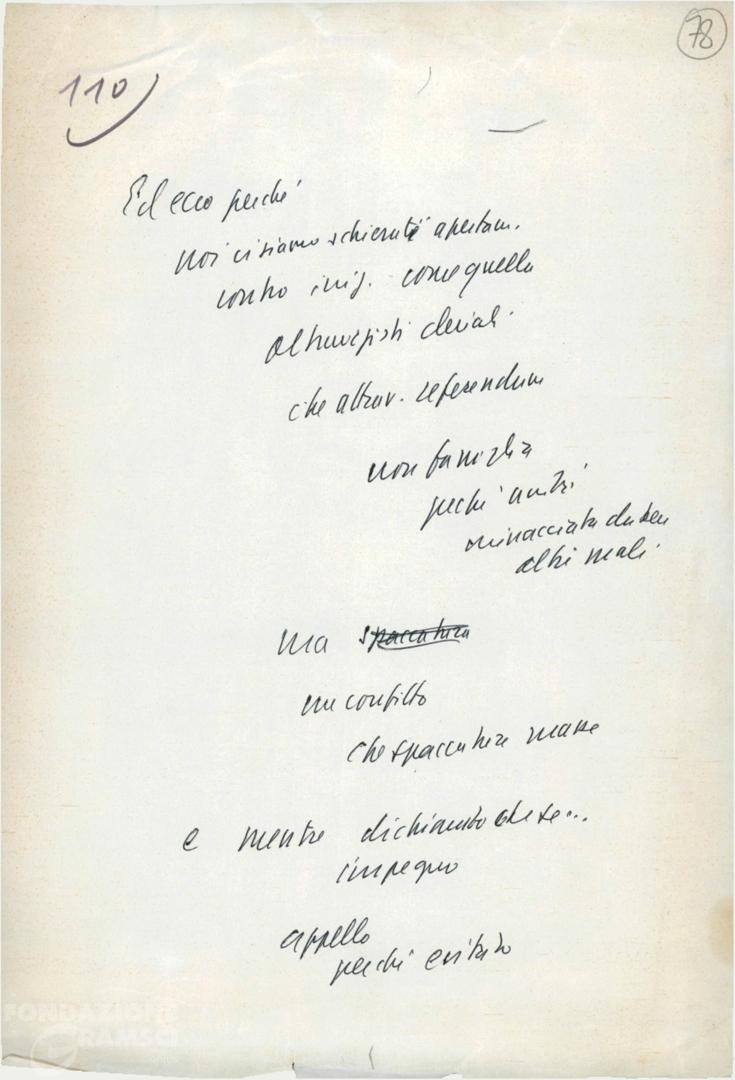 78
110
Ed ecco perché
noi ci siamo schierati apertam.
contro iniz. come quella
oltranzisti clericali
che attrav. referendum
non famiglia
perché anch'
minacciata da ben
altri mali.
ma spaccatura
un conflitto
che spaccatura masse
e mentre dichiarato che se...
impegno
appello
perché evitato
FONDAZIONE
GRAMSCI